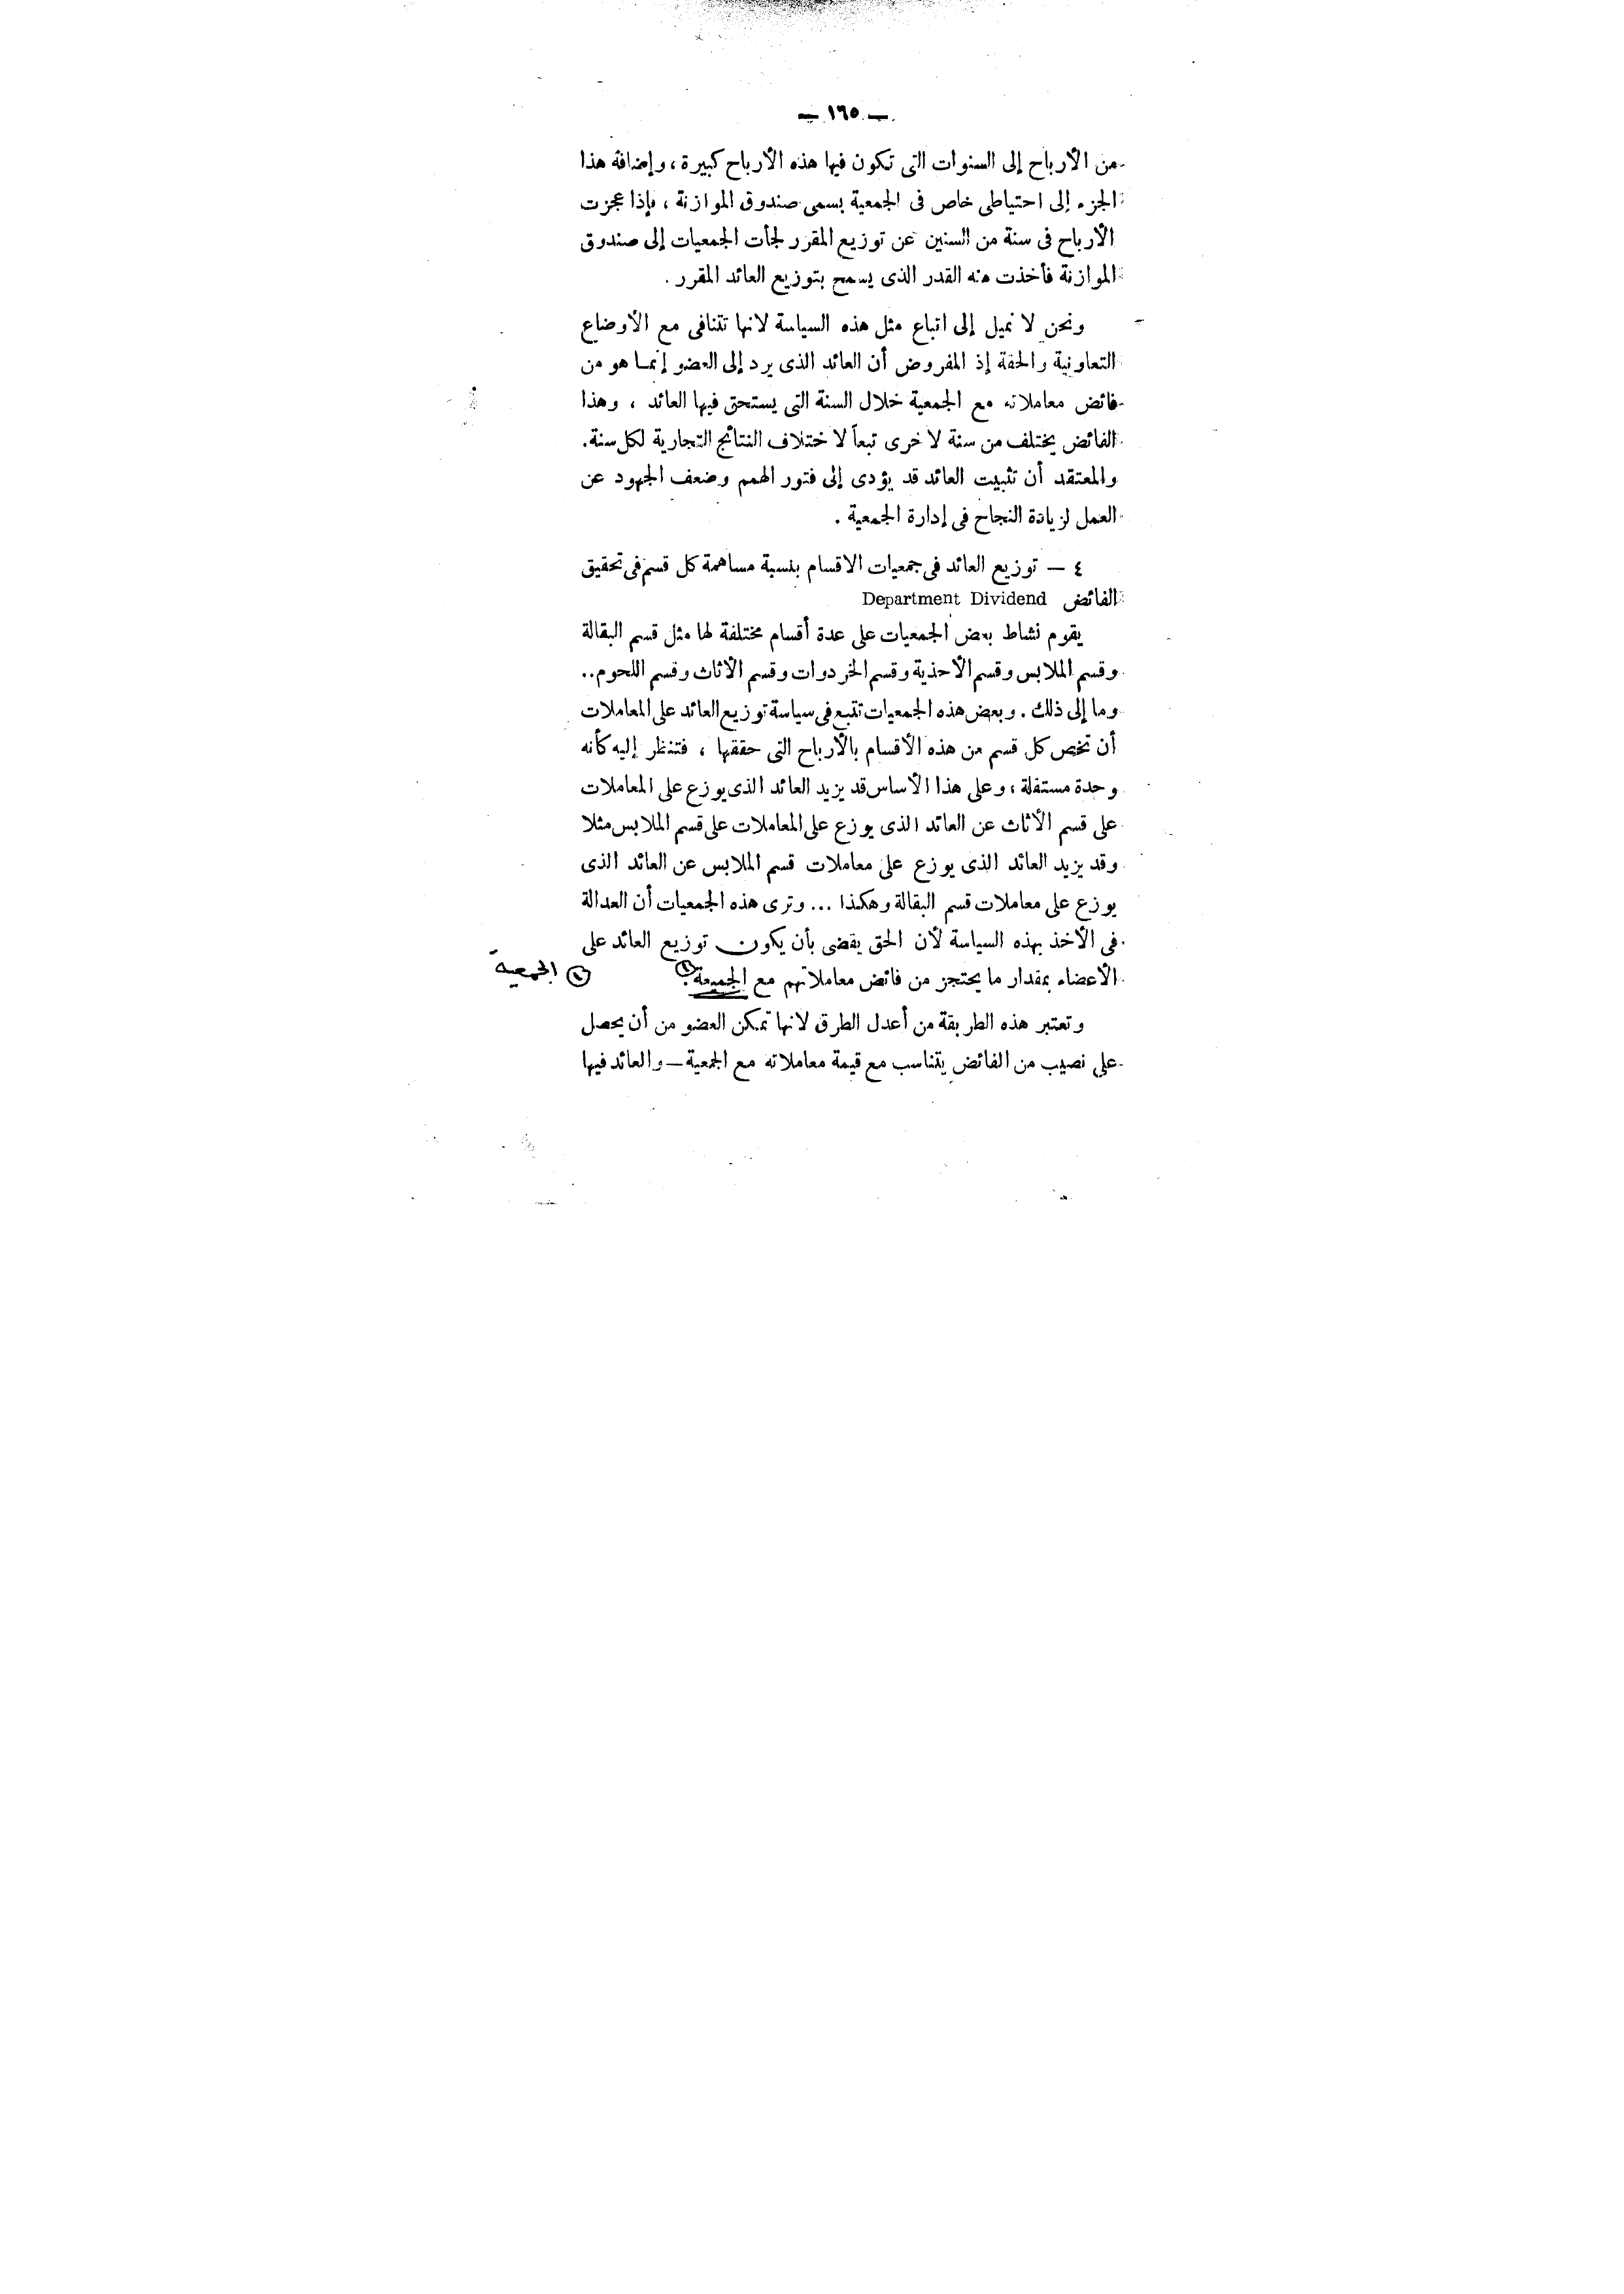 — ١٦٥ —
من الأرباح إلى السنوات التى تكون فيها هذه الأرباح كبيرة ، وإضافة هذا
الجزء إلى احتياطى خاص فى الجمعية يسمى صندوق الموازنة ، فإذا عجزت
الأرباح فى سنة من السنين عن توزيع المقرر لجأت الجمعيات إلى صندوق
الموازنة فأخذت منه القدر الذى يسمح بتوزيع العائد المقرر .
ونحن لا نميل إلى اتباع مثل هذه السياسة لانها تتنافى مع الأوضاع
التعاونية والحقة إذ المفروض أن العائد الذى يرد إلى العضو إنما هو من
فائض معاملاته مع الجمعية خلال السنة التى يستحق فيها العائد ، وهذا
الفائض يختلف من سنة لاخرى تبعاً لاختلاف النتائج التجارية لكل سنة .
والمعتقد أن تثبيت العائد قد يؤدى إلى فتور الهمم وضعف الجهود عن
العمل لزيادة النجاح فى إدارة الجمعية .
٤ — توزيع العائد فى جمعيات الاقسام بنسبة مساهمة كل قسم فى تحقيق
الفائض Department Dividend
يقوم نشاط بعض الجمعيات على عدة أقسام مختلفة لها مثل قسم البقالة
وقسم الملابس وقسم الأحذية وقسم الخردوات وقسم الأثاث وقسم اللحوم ..
وما إلى ذلك . وبعض هذه الجمعيات تتبع فى سياسة توزيع العائد على المعاملات
أن تخص كل قسم من هذه الأقسام بالأرباح التى حققها ، فتنظر إليه كأنه
وحدة مستقلة ، وعلى هذا الأساس قد يزيد العائد الذى يوزع على المعاملات
على قسم الأثاث عن العائد الذى يوزع على المعاملات على قسم الملابس مثلا
وقد يزيد العائد الذى يوزع على معاملات قسم الملابس عن العائد الذى
يوزع على معاملات قسم البقالة وهكذا ... وترى هذه الجمعيات أن العدالة
فى الأخذ بهذه السياسة لأن الحق يقضى بأن يكون توزيع العائد على
الأعضاء بمقدار ما يحتجز من فائض معاملاتهم مع الجميعة . (١) (١) الجمعية
وتعتبر هذه الطريقة من أعدل الطرق لانها تمكن العضو من أن يحصل
على نصيب من الفائض يتناسب مع قيمة معاملاته مع الجمعية — والعائد فيها